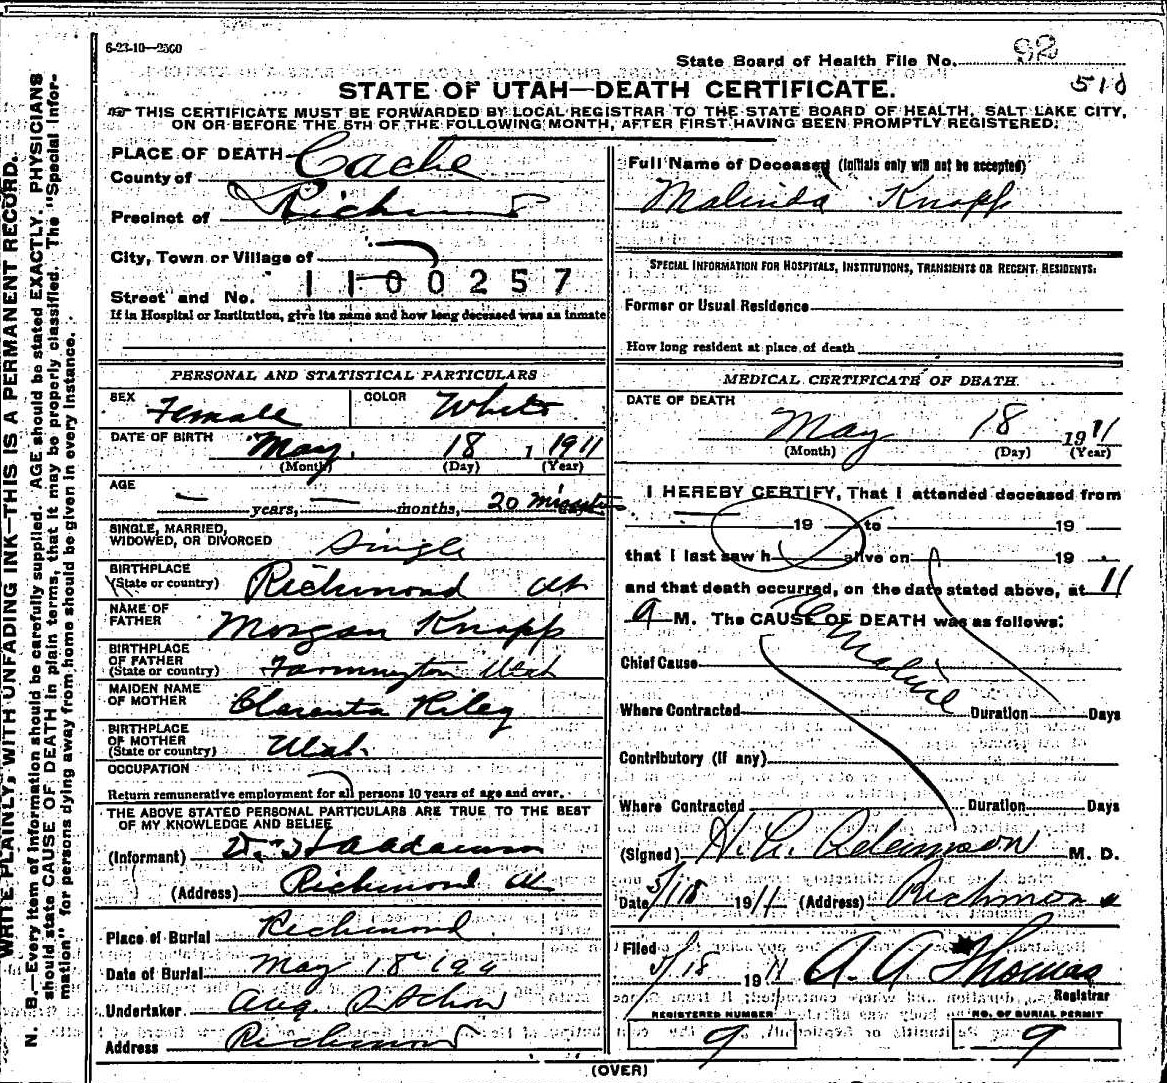 6-23-10—2500
State Board of Health File No. 92
510
STATE OF UTAH—DEATH CERTIFICATE.
THIS CERTIFICATE MUST BE FORWARDED BY LOCAL REGISTRAR TO THE STATE BOARD OF HEALTH, SALT LAKE CITY,
ON OR BEFORE THE 5TH OF THE FOLLOWING MONTH, AFTER FIRST HAVING BEEN PROMPTLY REGISTERED.
PLACE OF DEATH
County of Cache
Precinct of Richmond
City, Town or Village of
Street and No. 1100257
If in Hospital or Institution, give its name and how long deceased was an inmate
Full Name of Deceased (Initials only will not be accepted)
Malinda Knapp
SPECIAL INFORMATION FOR HOSPITALS, INSTITUTIONS, TRANSIENTS OR RECENT RESIDENTS:
Former or Usual Residence
How long resident at place of death
PERSONAL AND STATISTICAL PARTICULARS
SEX Female COLOR White
DATE OF BIRTH May 18 1 1911
(Month) (Day) (Year)
AGE
— years, — months, 20 minutes
SINGLE, MARRIED,
WIDOWED, OR DIVORCED Single
BIRTHPLACE
(State or country) Richmond Ut
NAME OF
FATHER Morgan Knapp
BIRTHPLACE
OF FATHER
(State or country) Farmington Utah
MAIDEN NAME
OF MOTHER Clarenta Riley
BIRTHPLACE
OF MOTHER
(State or country) Utah
OCCUPATION
Return remunerative employment for all persons 10 years of age and over.
THE ABOVE STATED PERSONAL PARTICULARS ARE TRUE TO THE BEST
OF MY KNOWLEDGE AND BELIEF
(Informant)
(Address) Richmond Ut
Place of Burial Richmond
Date of Burial May 18 191
Undertaker Aug.
Address Richmond
MEDICAL CERTIFICATE OF DEATH.
DATE OF DEATH
May 18 1911
(Month) (Day) (Year)
I HEREBY CERTIFY, That I attended deceased from
19 to 19
that I last saw h alive on 19
and that death occurred, on the date stated above, at 11
a M. The CAUSE OF DEATH was as follows:
Chief Cause
Where Contracted Duration Days
Contributory (if any)
Where Contracted Duration Days
(Signed) H. G. Adamson M. D.
Date 5/18 1911 (Address) Richmond
Filed
5/18 1911 A. A. Thomas
Registrar
REGISTERED NUMBER
9
NO. OF BURIAL PERMIT
9
(OVER)
WRITE PLAINLY, WITH UNFADING INK—THIS IS A PERMANENT RECORD.
N. B.—Every item of information should be carefully supplied. AGE should be stated EXACTLY. PHYSICIANS
should state CAUSE OF DEATH in plain terms, that it may be properly classified. The "Special Infor-
mation" for persons dying away from home should be given in every instance.